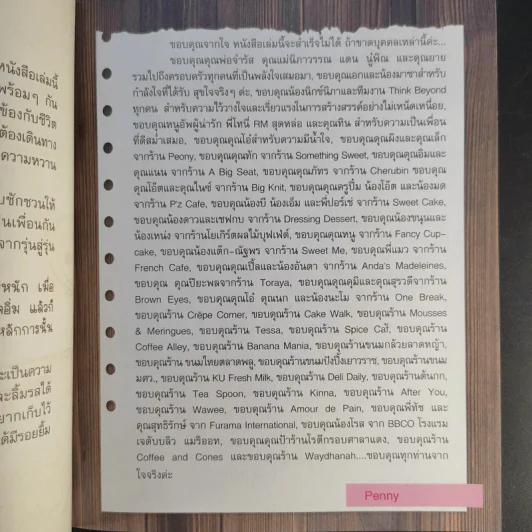 หนังสือเล่มนี้
พร้อมๆ กัน
ข้องกับชีวิต
ต้องเดินทาง
ความหวาน
ชักชวนให้
เป็นเพื่อนกัน
จากรุ่นสู่รุ่น
หนัก เมื่อ
อิ่ม แล้วก็
หลักการนั้น
จะเป็นความ
และลิ้มรสได้
อยากเก็บไว้
ได้มีรอยยิ้ม
ขอบคุณจากใจ หนังสือเล่มนี้จะสำเร็จไม่ได้ ถ้าขาดบุคคลเหล่านี้ค่ะ...
ขอบคุณคุณพ่อจำรัส คุณแม่นิภาวรรณ แดน นู๋พิณ และคุณยาย
รวมไปถึงครอบครัวทุกคนที่เป็นพลังใจเสมอมา, ขอบคุณเอกและน้องมาชาสำหรับ
กำลังใจที่ได้รับ สุขใจจริงๆ ค่ะ, ขอบคุณน้องนิกซ์นิภาและทีมงาน Think Beyond
ทุกคน สำหรับความไว้วางใจและเรี่ยวแรงในการสร้างสรรค์อย่างไม่เหน็ดเหนื่อย,
ขอบคุณหนูอัพผู้น่ารัก พี่โหน่ RM สุดหล่อ และคุณทีน สำหรับความเป็นเพื่อน
ที่ดีสม่ำเสมอ, ขอบคุณคุณโอ๋สำหรับความมีน้ำใจ, ขอบคุณคุณผึงและคุณเล็ก
จากร้าน Peony, ขอบคุณคุณทัก จากร้าน Something Sweet, ขอบคุณคุณอิมและ
คุณแนน จากร้าน A Big Seat, ขอบคุณคุณภัทร จากร้าน Cherubin ขอบคุณ
คุณโอ๊ตและคุณไนซ์ จากร้าน Big Knit, ขอบคุณคุณครูปิ่ม น้องโอ๊ต และน้องมด
จากร้าน P'z Cafe, ขอบคุณน้องบี น้องเอ็ม และพี่ปอร์เช่ จากร้าน Sweet Cake,
ขอบคุณน้องดาวและเชฟกบ จากร้าน Dressing Dessert, ขอบคุณน้องขนุนและ
น้องเหน่ง จากร้านโยเกิร์ตผลไม้บุฟเฟ่ต์, ขอบคุณคุณหนู จากร้าน Fancy Cup-
cake, ขอบคุณน้องแต๊ก-ณัฐพร จากร้าน Sweet Me, ขอบคุณพี่แมว จากร้าน
French Cafe, ขอบคุณคุณเปิ้ลและน้องอันดา จากร้าน Anda's Madeleines,
ขอบคุณ คุณปิยะพลจากร้าน Toraya, ขอบคุณคุณคุมิและคุณสุรวดีจากร้าน
Brown Eyes, ขอบคุณคุณโอ๋ คุณนก และน้องนะโม จากร้าน One Break,
ขอบคุณร้าน Crêpe Corner, ขอบคุณร้าน Cake Walk, ขอบคุณร้าน Mousses
& Meringues, ขอบคุณร้าน Tessa, ขอบคุณร้าน Spice Café, ขอบคุณร้าน
Coffee Alley, ขอบคุณร้าน Banana Mania, ขอบคุณร้านขนมกล้วยลาดหญ้า,
ขอบคุณร้าน ขนมไทยตลาดพลู, ขอบคุณร้านขนมปังปิ้งเยาวราช, ขอบคุณร้านขนม
มศว., ขอบคุณร้าน KU Fresh Milk, ขอบคุณร้าน Deli Daily, ขอบคุณร้านต้นกก,
ขอบคุณร้าน Tea Spoon, ขอบคุณร้าน Kinna, ขอบคุณร้าน After You,
ขอบคุณร้าน Wawee, ขอบคุณร้าน Amour de Pain, ขอบคุณพี่ทัช และ
คุณสุทธิรักษ์ จาก Furama International, ขอบคุณน้องไรส จาก BBCO โรงแรม
เจดับบลิว แมริออท, ขอบคุณคุณป้าร้านโรตีกรอบศาลาแดง, ขอบคุณร้าน
Coffee and Cones และขอบคุณร้าน Waydhanah....ขอบคุณทุกท่านจาก
ใจจริงค่ะ
Penny